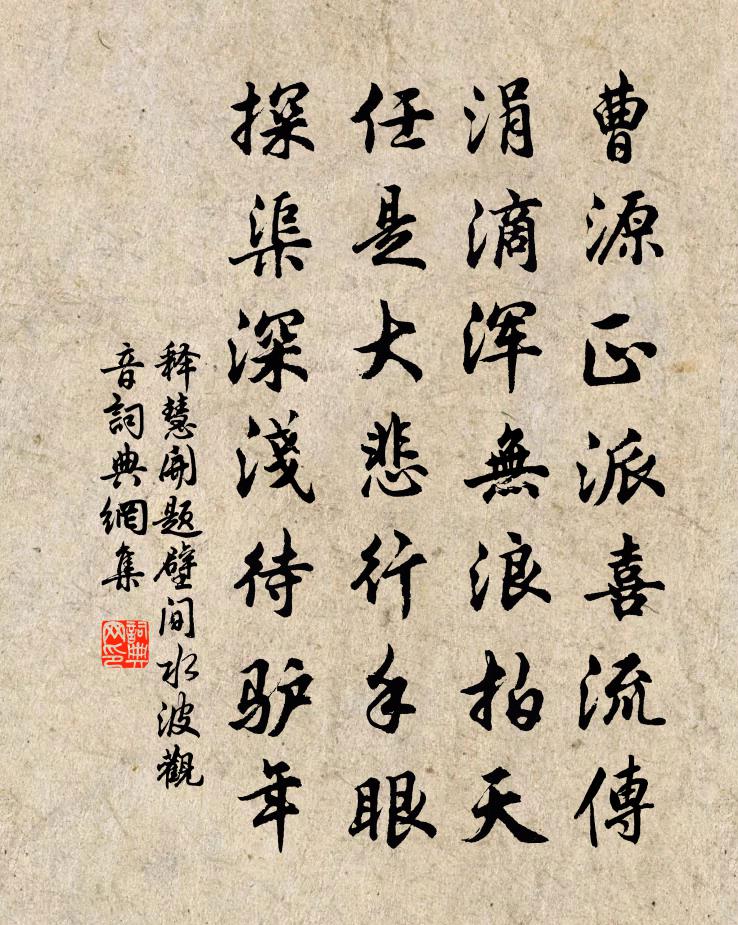 曹源正派喜流傳
涓滴渾無浪拍天
任是大悲行手眼
探渠深淺待驴年
释慧開題壁间水波觀
音詞典網集
詞典
网印